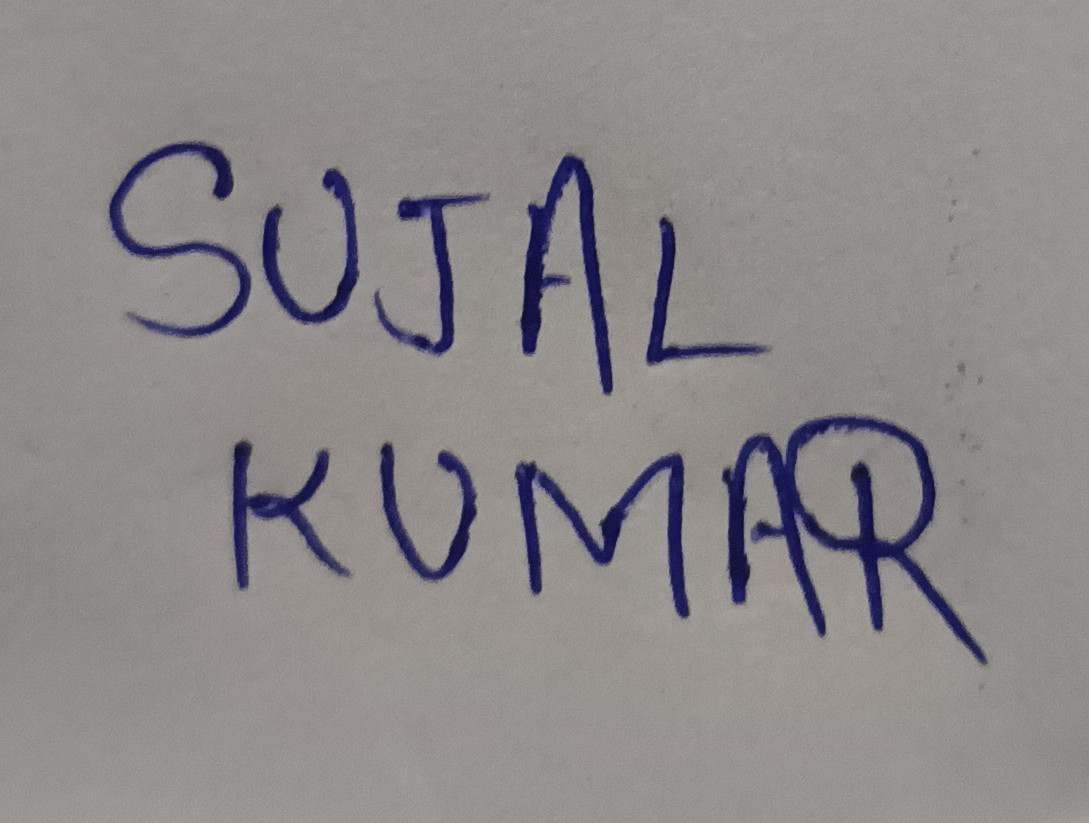 SUJAL
KUMAR